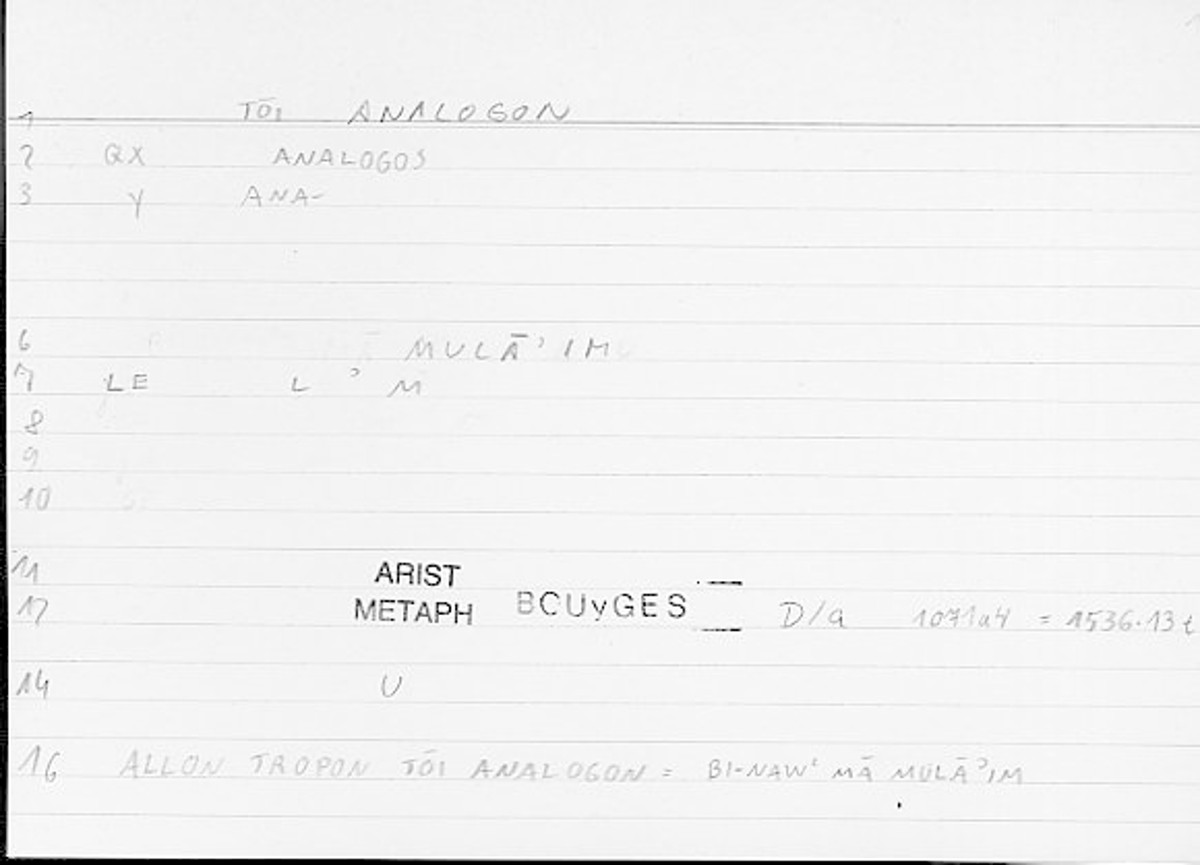 1 TŌI ANALOGON
2 QX ANALOGOS
3 Y ANA-
6 MULĀʾIM
7 LE L ʾ M
8
9
10
11 ARIST
12 METAPH BOUyGES D/a 1071a4 = 1536.13
14 U
16 ALLON TROPON TŌI ANALOGON = BI-NAWʿ MĀ MULĀʾIM